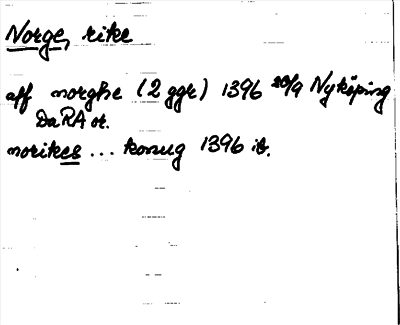 Norge, rike
aff norghe (2 ggr) 1396 20/9 Nyköping
DaRA or.
norikes ... konug 1396 ib.